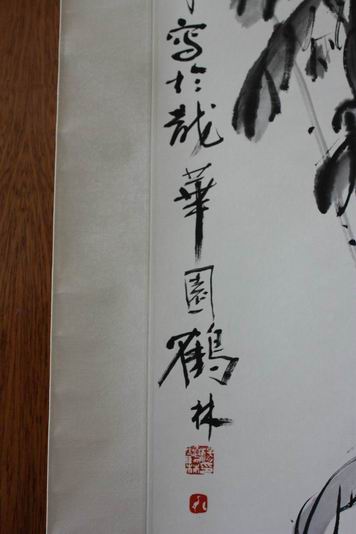 寫於哉華園鶴林